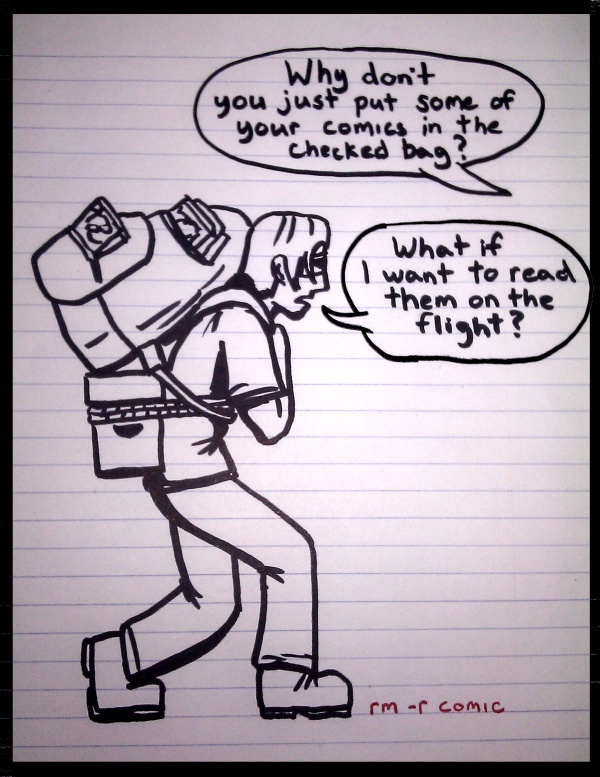 Why don't
you just put some of
your comics in the
checked bag?
What if
I want to read
them on the
flight?
rm -r comic